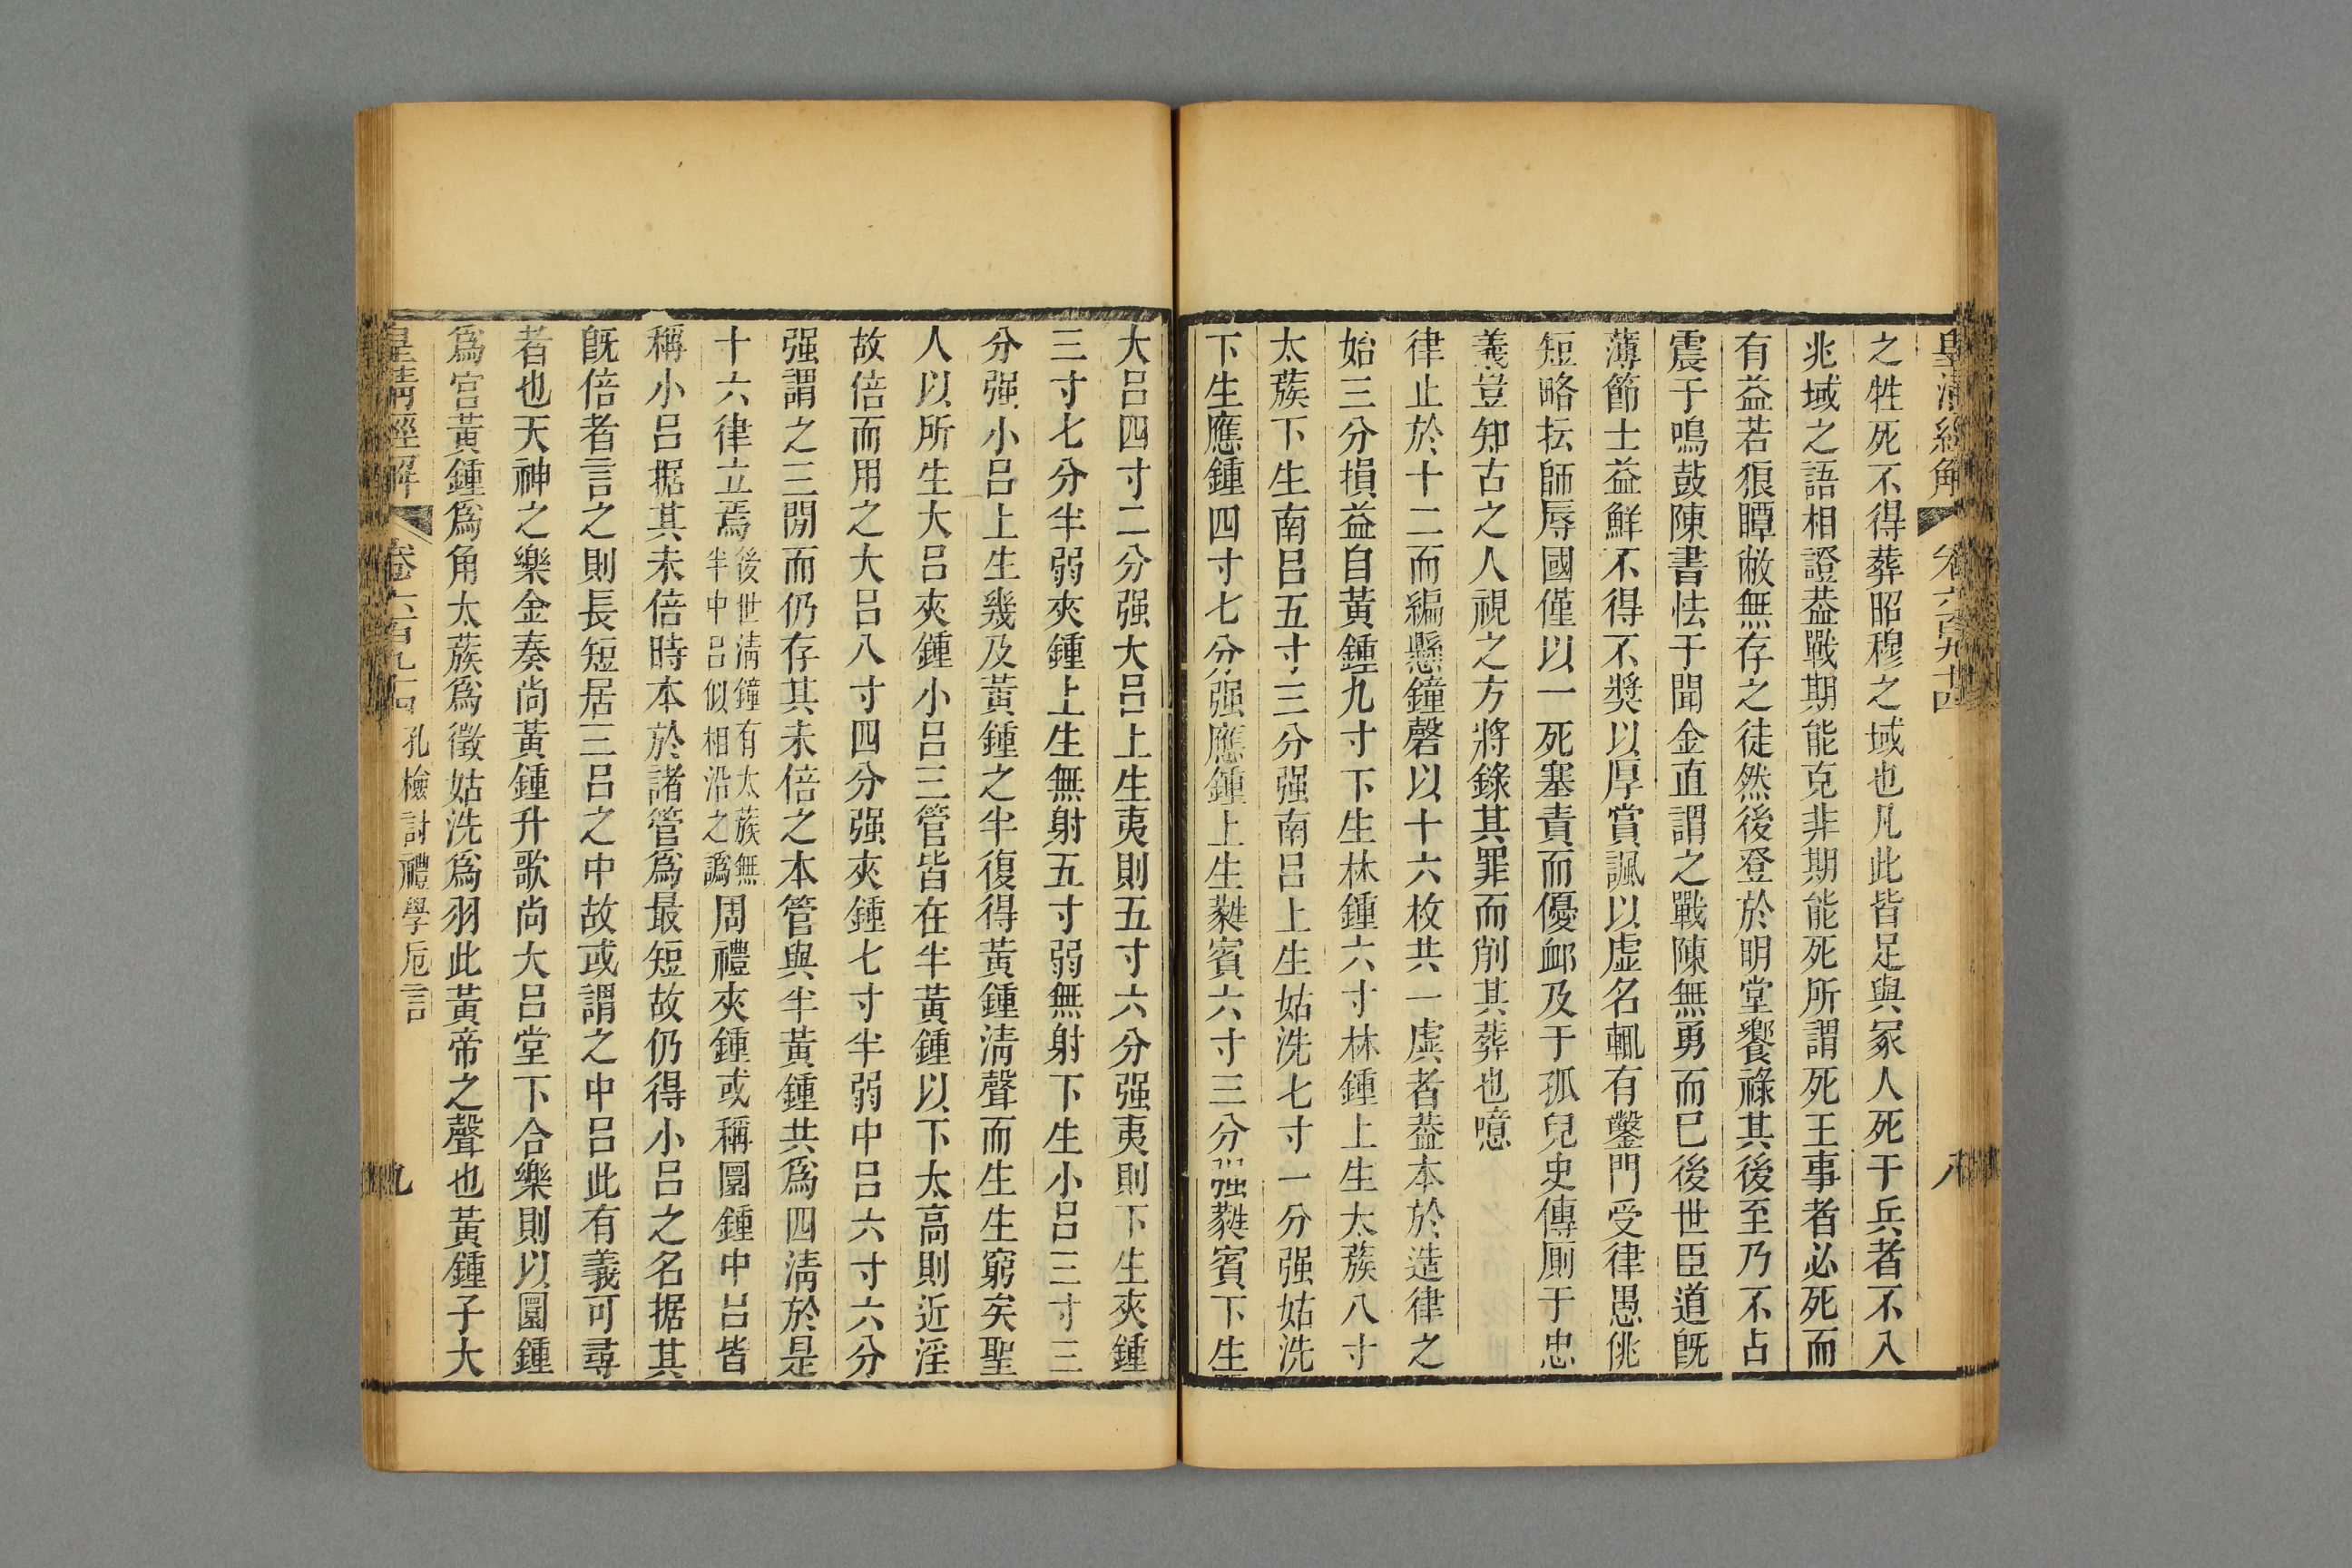 皇清經解 卷六百九十四 八
之牲死不得葬昭穆之域也凡此皆足與冢人死于兵者不入
兆域之語相證葢戰期能克非期能死所謂死王事者必死而
有益若狼瞫敝無存之徒然後登於明堂饗祿其後至乃不占
震于鳴鼓陳書怯于聞金直謂之戰陳無勇而已後世臣道旣
薄節士益鮮不得不獎以厚賞諷以虛名輒有鑿門受律愚佻
短略抎師辱國僅以一死塞責而優衈及于孤兒史傳厠于忠
義豈知古之人視之方將錄其罪而削其葬也噫
律止於十二而編懸鐘磬以十六枚共一虡者葢本於造律之
始三分損益自黃鍾九寸下生林鍾六寸林鍾上生太蔟八寸
太蔟下生南呂五寸三分强南呂上生姑洗七寸一分强姑洗
下生應鍾四寸七分强應鍾上生蕤賓六寸三分强蕤賓下生
大呂四寸二分强大呂上生夷則五寸六分强夷則下生夾鍾
三寸七分半弱夾鍾上生無射五寸弱無射下生小呂三寸三
分强小呂上生幾及黃鍾之半復得黃鍾淸聲而生生窮矣聖
人以所生大呂夾鍾小呂三管皆在半黃鍾以下太高則近淫
故倍而用之大呂八寸四分强夾鍾七寸半弱中呂六寸六分
强謂之三閒而仍存其未倍之本管與半黃鍾共爲四淸於是
十六律立焉後世淸鐘有太蔟無半中呂似相沿之譌周禮夾鍾或稱圜鍾中呂皆
稱小呂据其未倍時本於諸管爲最短故仍得小呂之名据其
旣倍者言之則長短居三呂之中故或謂之中呂此有義可尋
者也天神之樂金奏尚黃鍾升歌尚大呂堂下合樂則以圜鍾
爲宮黃鍾爲角太蔟爲徵姑洗爲羽此黃帝之聲也黃鍾子大
皇淸經解 卷六百九十四 孔檢討禮學卮言 九